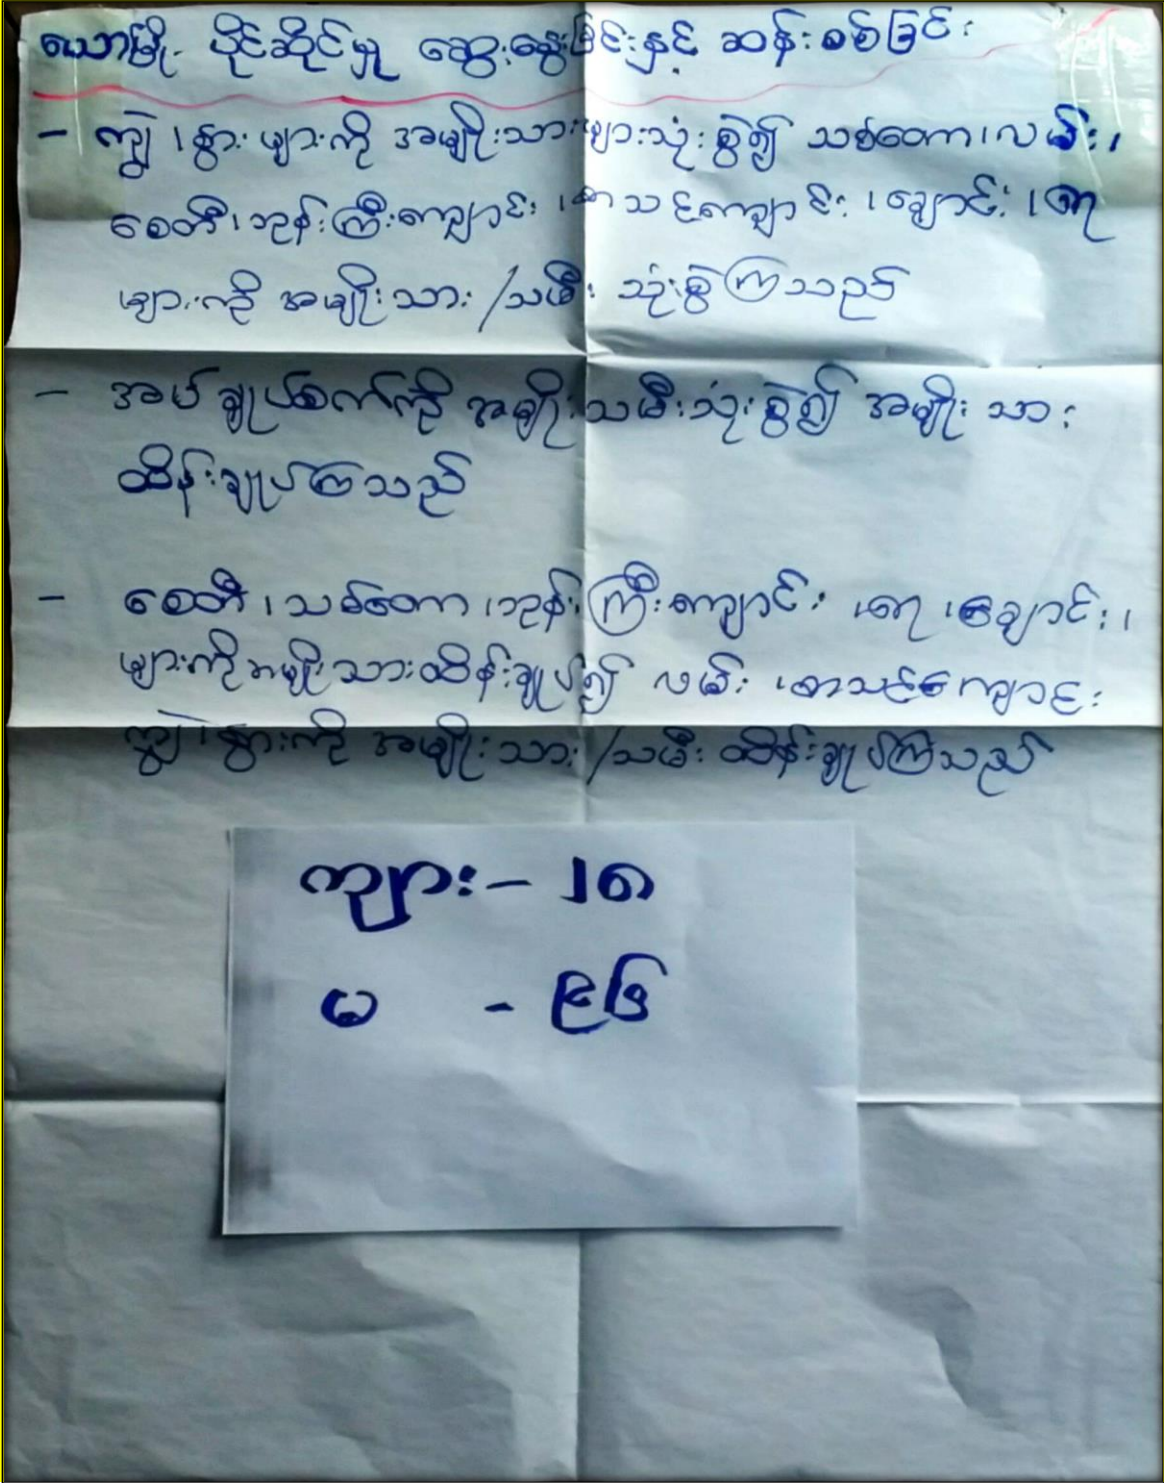 ယောမြို့ ပိုင်ဆိုင်မှု ဆွေးနွေးခြင်းနှင့် ဆန်းစစ်ခြင်း
– ကျွဲ ၊ နွား များကို အမျိုးသားများသုံးစွဲ၍ သစ်တော ၊ လမ်း ၊
စေတီ ၊ ဘုန်းကြီးကျောင်း ၊ စာသင်ကျောင်း ၊ ချောင်း ၊ ရေ
များကို အမျိုးသား / သမီး သုံးစွဲကြသည်
– အပ်ချုပ်စက်ကို အမျိုးသမီးသုံးစွဲ၍ အမျိုးသား
ထိန်းချုပ်ကြသည်
– စေတီ ၊ သစ်တော ၊ ဘုန်းကြီးကျောင်း ၊ ရေ ၊ ချောင်း ၊
များကိုအမျိုးသားထိန်းချုပ်၍ လမ်း ၊ စာသင်ကျောင်း
ကျွဲ ၊ နွားကို အမျိုးသား / သမီး ထိန်းချုပ်ကြသည်
ကျား – ၂၈
မ - ၉၆